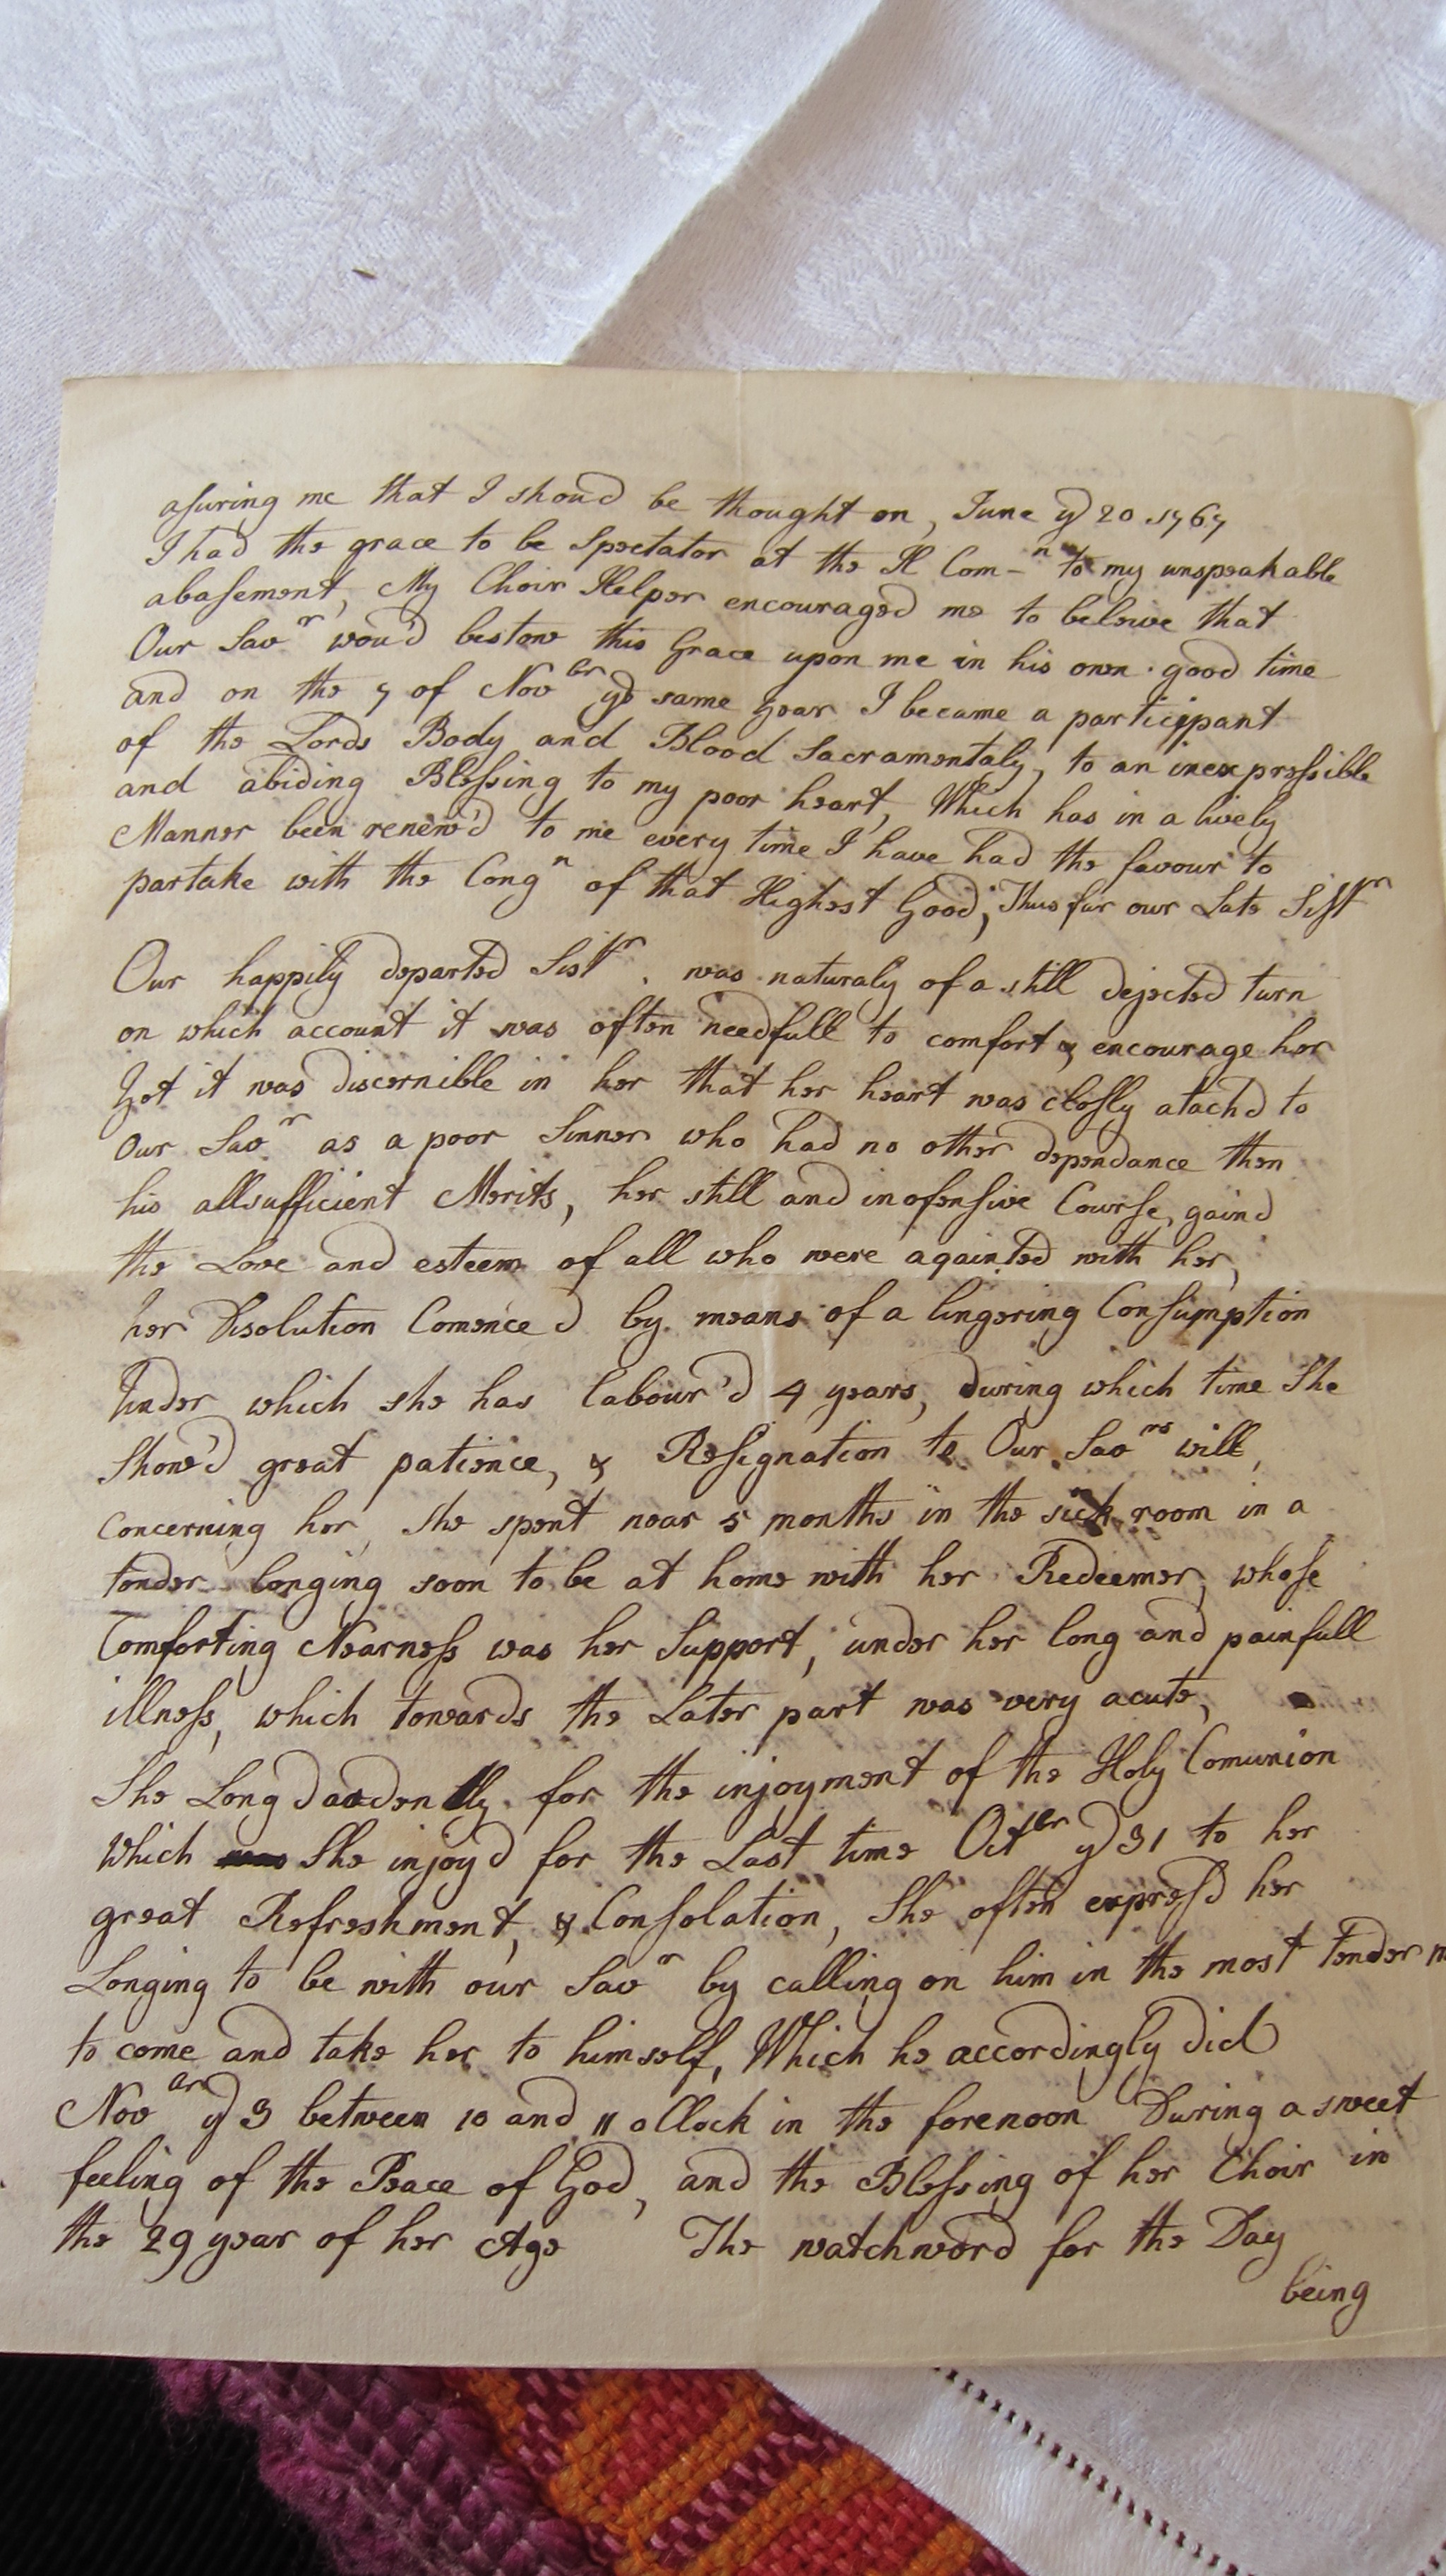 asuring me that I shoud be thought on, June yd 20 1767
I had the grace to be Spectator at the H Com-n to my unspeakable
abasement, My Choir Helper encouraged me to beleive that
Our Savr wou'd bestow this Grace upon me in his own good time
and on the 7 of Novbr ye same Year I became a participant
of the Lords Body and Blood Sacramentaly, to an inexpressible
and abiding Blessing to my poor heart, Which has in a lively
Manner been renew'd to me every time I have had the favour to
partake with the Congn of that Highest Good; Thus far our Late Sistr
Our happily departed Sistr. was naturaly of a still dejected turn
on which account it was often needfull to comfort & encourage her
Yet it was discernible in her that her heart was closly atachd to
Our Savr as a poor Sinner who had no other dependance then
his allsufficient Merits, her still and inofensive Course, gaind
the Love and esteem of all who were aqainted with her,
her Disolution Comenced by means of a lingering Consumption
Under which she has labour'd 4 years, during which time She
Show'd great patience, & Resignation to Our Savrs will,
concerning her, She spent near 5 months in the sick room in a
tender longing soon to be at home with her Redeemer, whose
Comforting Nearness was her Support, under her long and painfull
illness, which towards the Later part was very acute,
She Longd ardently for the injoyment of the Holy Comunion
which She injoyd for the Last time Octbr yd 31 to her
great Refreshment, & Consolation, She often expresd her
Longing to be with our Savr by calling on him in the most tender
to come and take her to himself, Which he accordingly did
Novbr yd 3 between 10 and 11 oClock in the forenoon During a sweet
feeling of the Peace of God, and the Blessing of her Choir in
the 29 year of her Age The watchword for the Day
being